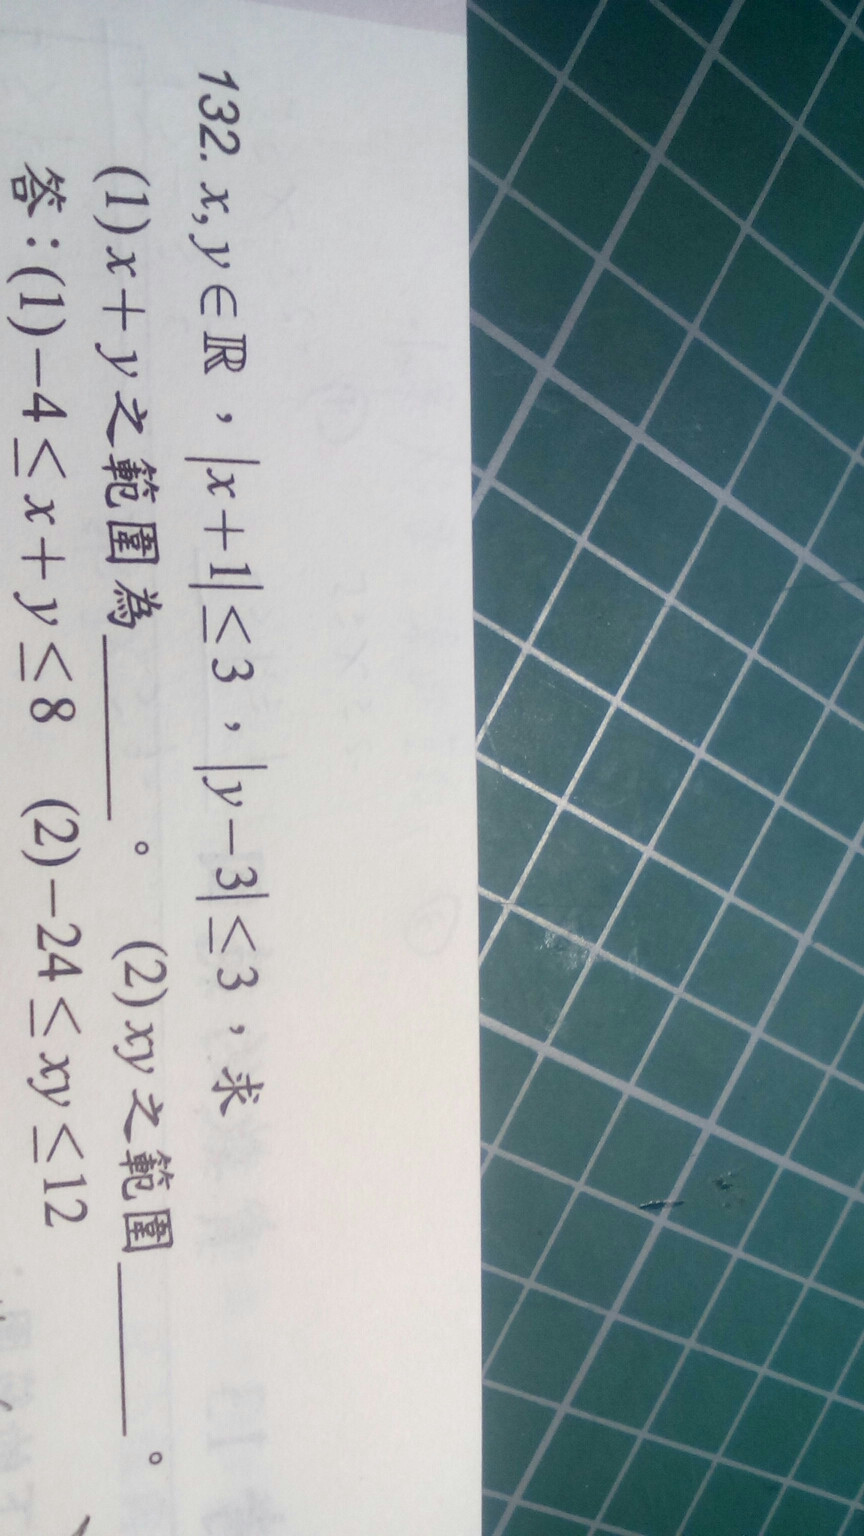 132. x, y ∈ ℝ，|x+1| ≤ 3，|y−3| ≤ 3，求
(1) x+y之範圍為______。 (2) xy之範圍______。
答：(1) −4 ≤ x+y ≤ 8 (2) −24 ≤ xy ≤ 12